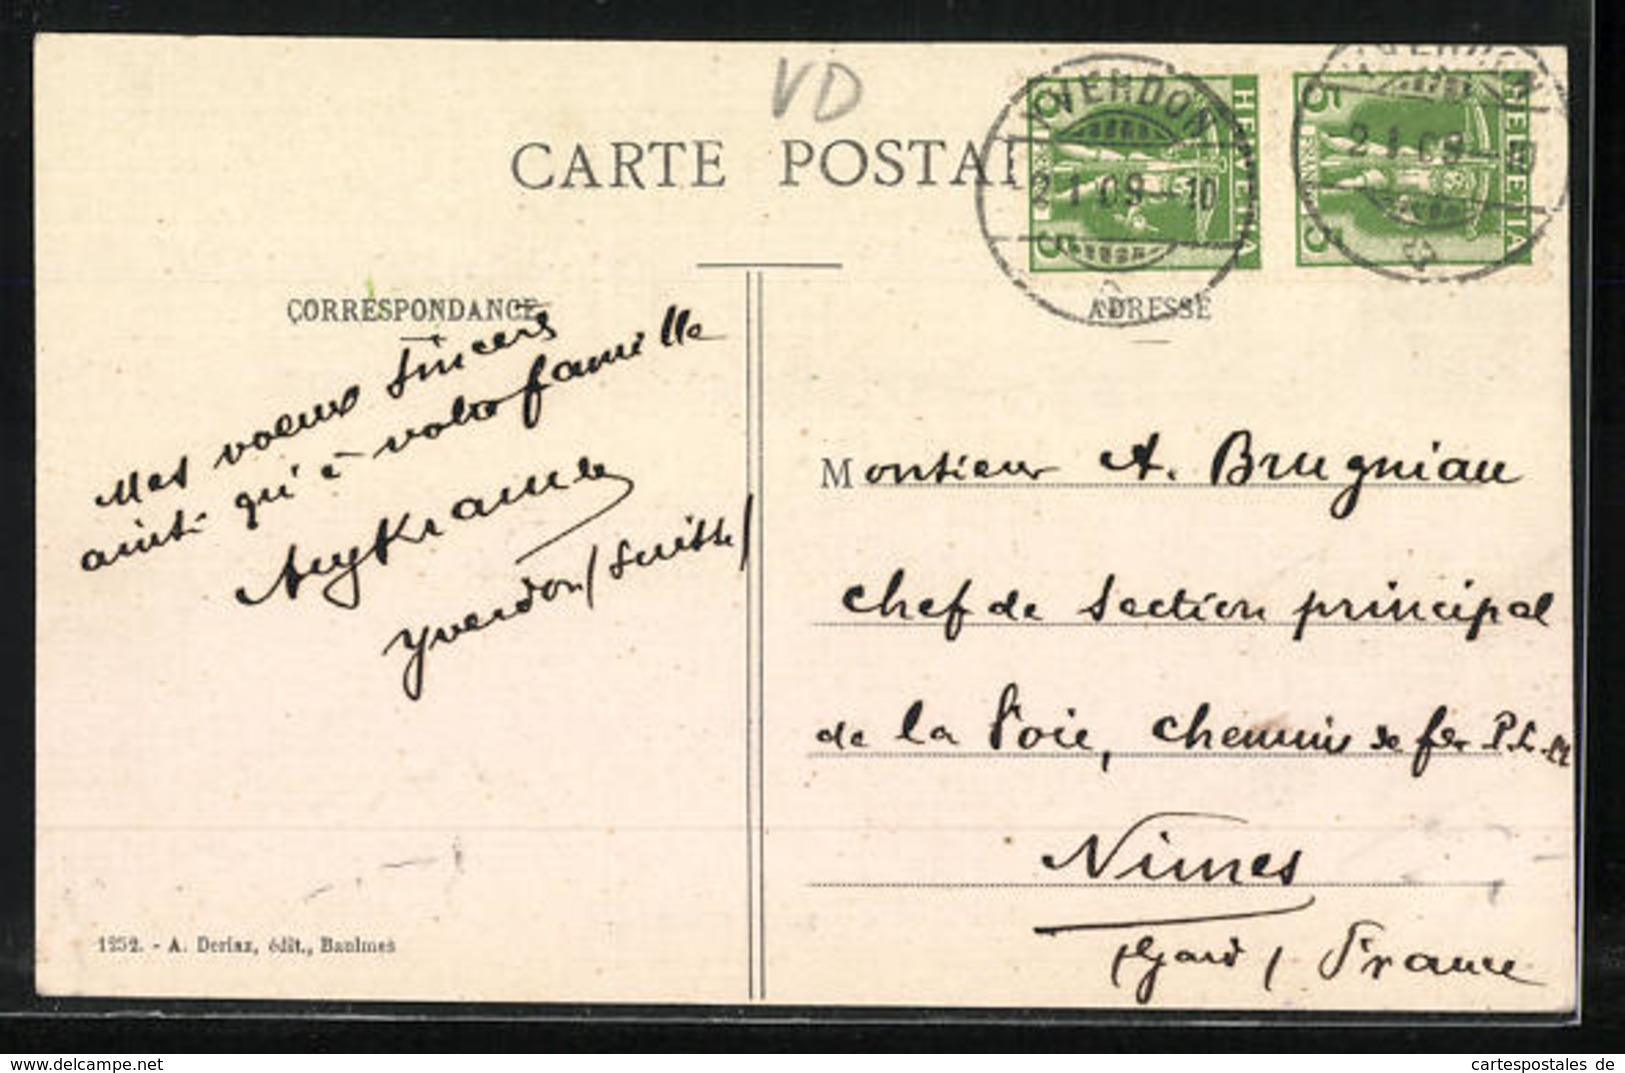 VD
CARTE POSTALE
YVERDON
2 1 09 - 10
HELVETIA
5
5
YVERDON
2 1 09
HELVETIA
5
5
CORRESPONDANCE
Mes voeux sincers
ainsi qu'à votre famille
Yverdon (Suisse)
1252. - A. Deriaz, édit., Baulmes
ADRESSE
Monsieur A. Brugniau
chef de Section principal
de la Voie, chemins de fer P.L.M
Nimes
(Gard) France
cartespostales de